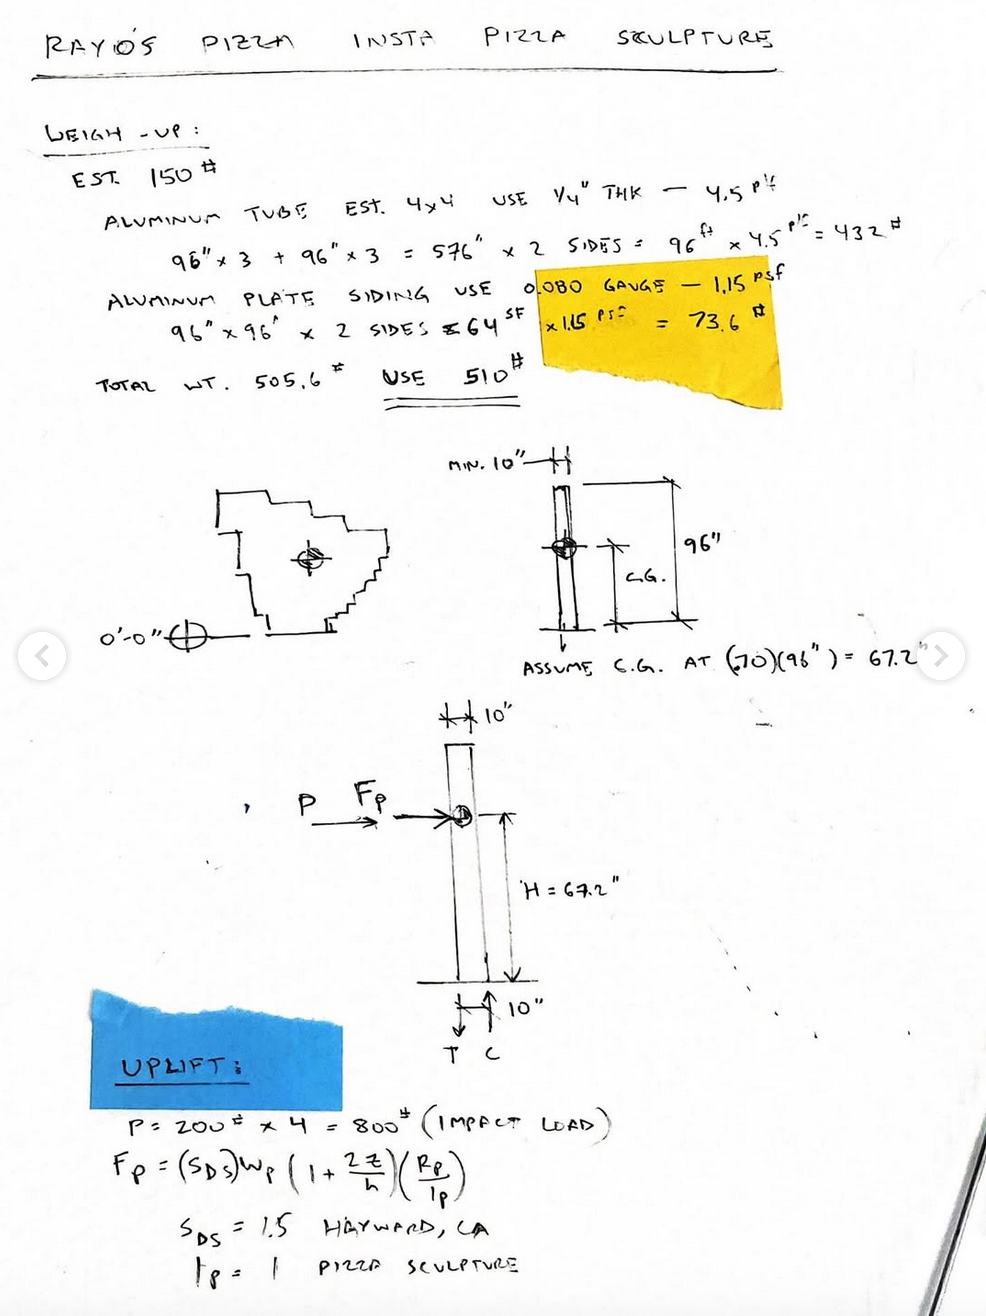 RAYO'S PIZZA INSTA PIZZA SCULPTURE
WEIGH-UP:
EST. 150#
ALUMINUM TUBE EST. 4x4 USE 1/4" THK — 4.5 plf
96" x 3 + 96" x 3 = 576" x 2 SIDES = 96 ft x 4.5 plf = 432#
ALUMINUM PLATE SIDING USE 0.080 GAUGE — 1.15 psf
96" x 96" x 2 SIDES = 64 SF x 1.15 PSF = 73.6#
TOTAL WT. 505.6# USE 510#
MIN. 10"
96"
C.G.
0'-0"
ASSUME C.G. AT (.70)(96") = 67.2"
10"
P Fp
H = 67.2"
10"
T C
UPLIFT:
P = 200# x 4 = 800# (IMPACT LOAD)
Fp = (SDS)Wp (1 + 2z/h)(Rp/Ip)
SDS = 1.5 HAYWARD, CA
Ip = 1 PIZZA SCULPTURE